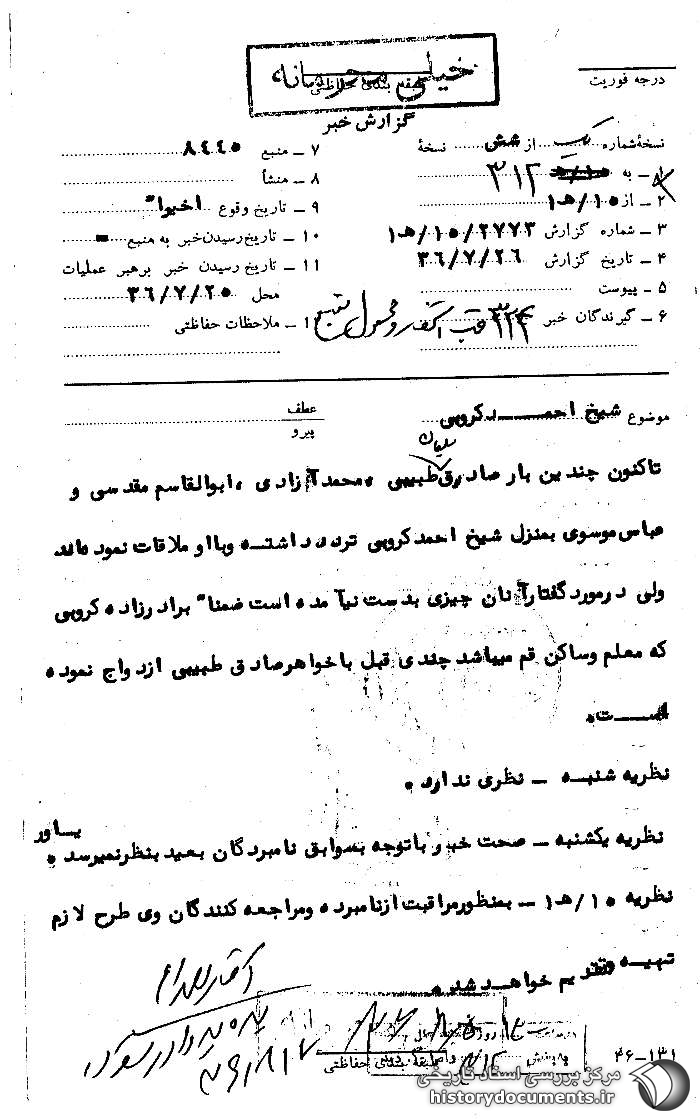 خیلی محرمانه
طبقه بندی حفاظتی
درجه فوریت
گزارش خبر
نسخهٔ شماره یک از شش نسخهٔ
۱ ـ به ۳۱۲
۲ ـ از ۱۰/هـ۱
۳ ـ شماره گزارش ۲۷۷۳/۱۰/هـ۱
۴ ـ تاریخ گزارش ۳۶/۷/۲۶
۵ ـ پیوست
۶ ـ گیرندگان خبر
۷ ـ منبع ۸۴۴۵
۸ ـ منشأ
۹ ـ تاریخ وقوع اخیرا"
۱۰ ـ تاریخ رسیدن خبر به منبع ـ
۱۱ ـ تاریخ رسیدن خبر برهبر عملیات
محل ۳۶/۷/۲۵
۱۲ ـ ملاحظات حفاظتی
موضوع شیخ احمد کروبی
عطف
پیرو
سلیمان
تاکنون چندین بار صادق طبیبی ، محمد آزادی ، ابوالقاسم مقدسی و
عباس موسوی بمنزل شیخ احمد کروبی تردد داشته وبا او ملاقات نموده اند
ولی در مورد گفتار آنان چیزی بدست نیآمده است ضمنا" برادرزاده کروبی
که معلم وساکن قم میباشد چندی قبل با خواهر صادق طبیبی ازدواج نموده
است.
نظریه شنبه ـ نظری ندارد .
نظریه یکشنبه ـ صحت خبر با توجه بسوابق نامبردگان بعید بنظر نمیرسد . یاور
نظریه ۱۰/هـ۱ ـ بمنظور مراقبت از نامبرده ومراجعه کنندگان وی طرح لازم
تهیه و تقدیم خواهد شد .
طبقه بندی حفاظتی
۴۶-۱۳۱
مرکز بررسی اسناد تاریخی
historydocuments.ir